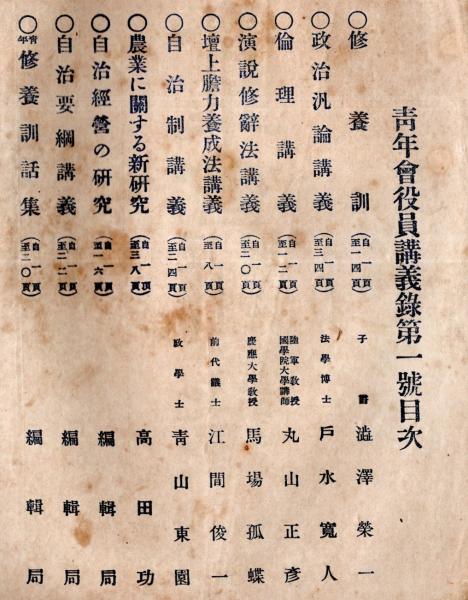 靑年會役員講義錄第一號目次
〇修養訓(自一頁至一四頁)子爵 澁澤榮一
〇政治汎論講義(自一頁至三四頁)法學博士 戶水寬人
〇倫理講義(自一頁至一二頁)陸軍敎授 國學院大學講師 丸山正彥
〇演說修辭法講義(自一頁至二〇頁)慶應大學敎授 馬場孤蝶
〇壇上膽力養成法講義(自一頁至八頁)前代議士 江間俊一
〇自治制講義(自一頁至二四頁)政學士 靑山東園
〇農業に關する新硏究(自一頁至三八頁)高田功
〇自治經營の硏究(自一頁至一六頁)編輯局
〇自治要綱講義(自一頁至二二頁)編輯局
〇靑年修養訓話集(自一頁至二〇頁)編輯局